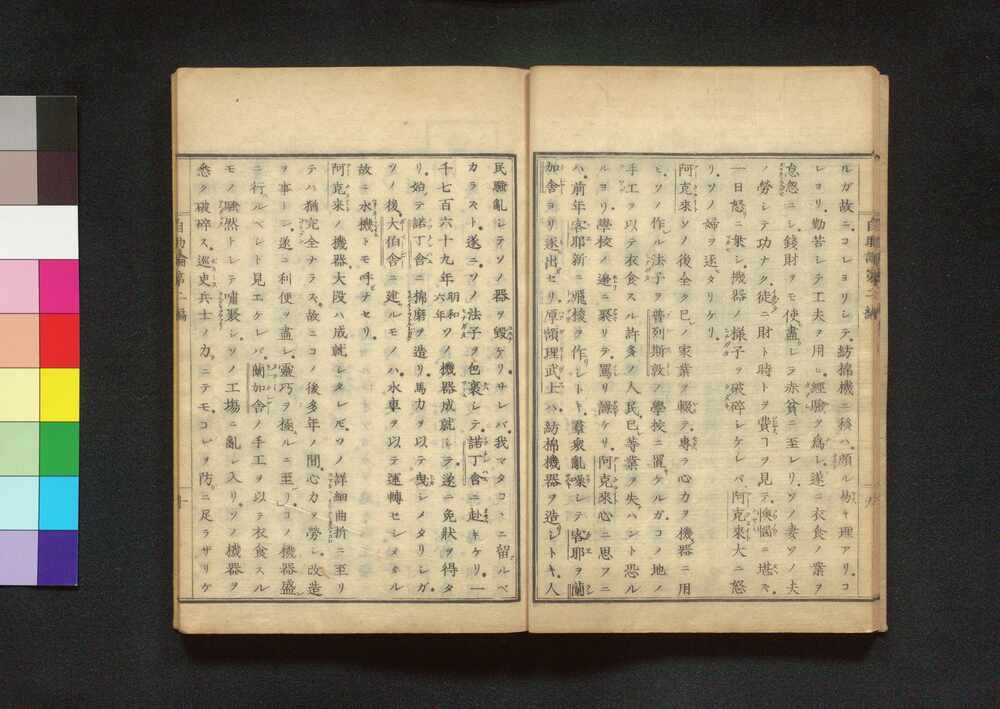 ルガ故ニ。コレヨリシテ。紡棉機ニ移ハ。頗ル易キ理アリ。コ
レヨリ。勤苦シテ工夫ヲ用ヒ。經驗ヲ爲シ。遂ニ衣食ノ業ヲ
怠忽ニシ。錢財ヲモ使盡シ。テ赤貧ニ至レリ。ソノ妻。ソノ夫
ノ勞シテ功ナク。徒ニ財ト時トヲ費スヿヲ見テ。懊惱ニ堪ズ。
一日怒ニ乗シ。機器ノ樣子ヲ破碎シケレバ。阿克來大ニ怒
リ。ソノ婦ヲ逐タリケリ。
阿克來ソノ後全ク巳ノ家業ヲ輟テ。專ラ心力ヲ機器ニ用
ヒ。ソノ作レル法子ヲ。普列斯敦ノ學挍ニ置ケルガ。コノ地ノ
手工ヲ以テ衣食スル許多ノ人民。巳等業ヲ失ハント恐ル
ルヨリ。學挍ノ邊ニ聚リテ。罵リ譟ケリ。阿克來心ニ思フニ
ハ。前年客耶新ニ飛梭ヲ作シトキ。羣衆亂噪シテ。客耶ヲ蘭
加舍ヨリ逐出セリ。厚頎理武士ハ紡棉機器ヲ造シトキ。人
自助論第二編
民騷亂シテ。ソノ器ヲ毀ケリ。サレバ我マタコヽニ留ルベ
カラスト。遂ニソノ法子ヲ包裹シテ。諾丁舍ニ赴キケリ。一
千七百六十九年。明和六年ソノ機器成就シ。ヲ遂ニ免狀ヲ得タ
リ。始テ諾丁舍ニ。棉磨ヲ造リ。馬力ヲ以テ曳シメタリシガ。
ソノ後。大伯舍ニ建ルモノハ。水車ヲ以テ運轉セシメタル
故ニ。水機トモ呼ナセリ。
阿克來ノ機器。大段ハ成就シタレ𪜈。ソノ詳細曲折ニ至リ
テハ。猶完全ナラス。故ニコノ後多年ノ間。心力ヲ勞シ。改造
ヲ事トシ。遂ニ利便ヲ盡シ。靈巧ヲ極ルニ至リ。コノ機器盛
ニ行ルベシト見エケレバ。蘭加舍ノ手工ヲ以テ衣食スル
モノ。騷然トシテ嘯聚シ。ソノ工塲ニ亂レ入リ。ソノ機器ヲ
悉ク破碎ス。巡吏兵士ノ力。ニテモ。コレヲ防ニ足ラザリケ
自助論第二編